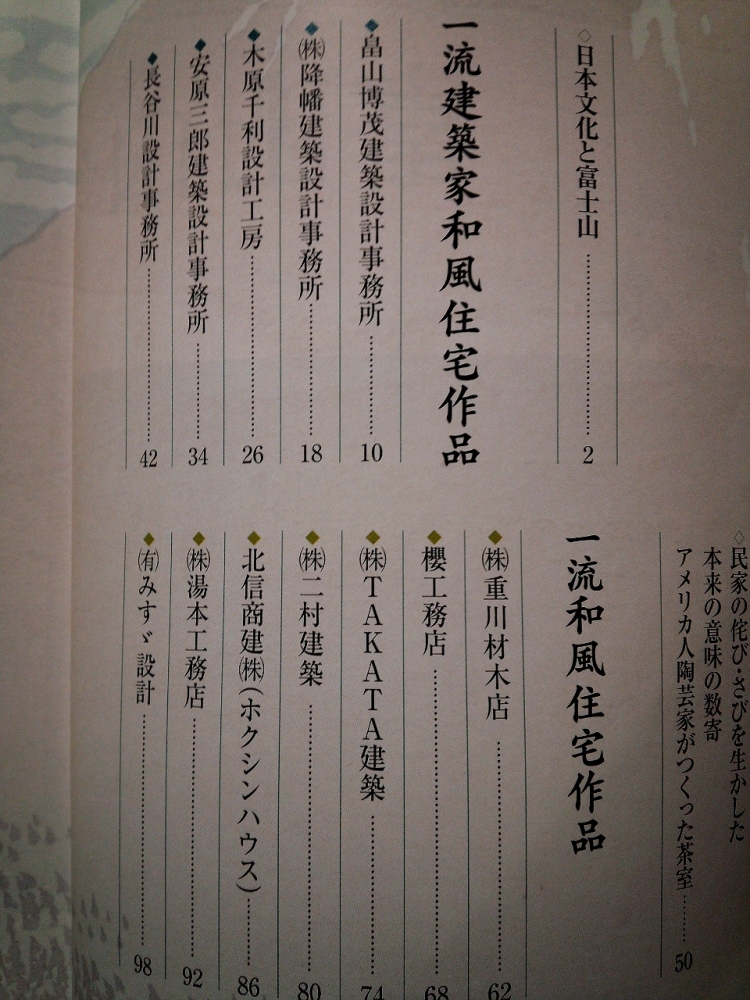 ◇日本文化と富士山…………2
一流建築家和風住宅作品
◆畠山博茂建築設計事務所…………10
◆㈱降幡建築設計事務所…………18
◆木原千利設計工房…………26
◆安原三郎建築設計事務所…………34
◆長谷川設計事務所…………42
◇民家の侘び・さびを生かした
本来の意味の数寄
アメリカ人陶芸家がつくった茶室…………50
一流和風住宅作品
◆㈱重川材木店…………62
◆櫻工務店…………68
◆㈱TAKATA建築…………74
◆㈱二村建築…………80
◆北信商建㈱(ホクシンハウス)…………86
◆㈱湯本工務店…………92
◆㈲みすゞ設計…………98